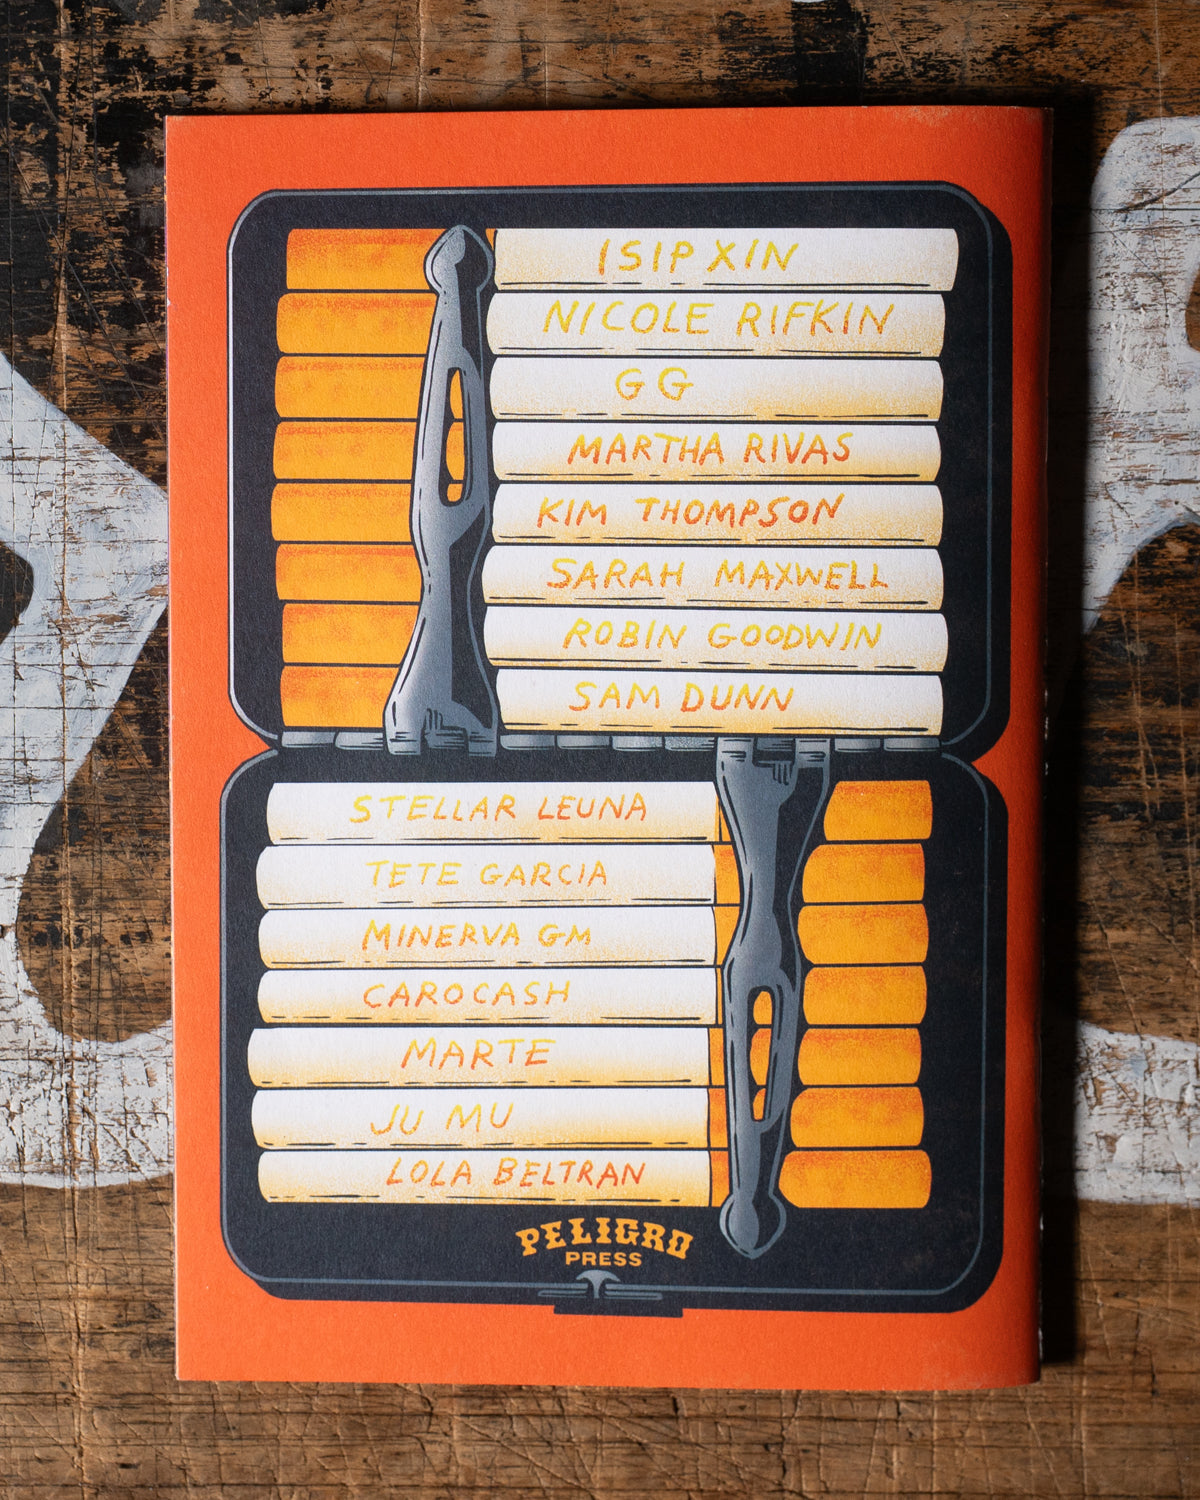 ISIP XIN
NICOLE RIFKIN
GG
MARTHA RIVAS
KIM THOMPSON
SARAH MAXWELL
ROBIN GOODWIN
SAM DUNN
STELLAR LEUNA
TETE GARCIA
MINERVA GM
CAROCASH
MARTE
JU MU
LOLA BELTRAN
PELIGRO
PRESS